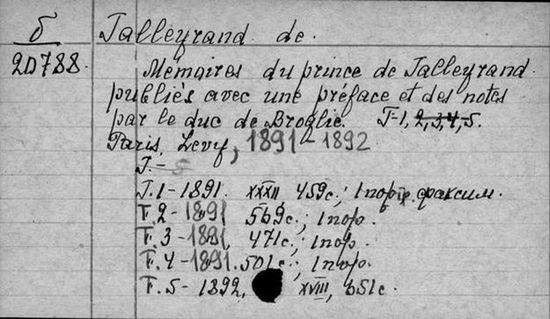 б Talleyrand de.
20788. Mémoires du prince de Talleyrand.
publiés avec une préface et des notes
par le duc de Broglie. T-1, 2, 3, 4, 5.
Paris, Levy, 1891-1892
T. - 5
T. 1 - 1891. XXXII 459c.; 1 портр. факсим.
T. 2 - 1891 569c.; 1 пор.
T. 3 - 1891, 471c.; 1 пор.
T. 4 - 1891. 501c.; 1 пор.
T. 5 - 1892, XVIII, 651c.